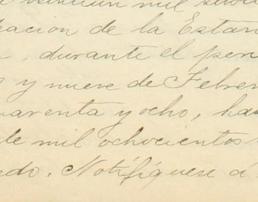 mil
acion de la Estan
, durante el peri
y nueve de Febrer
uarenta y ocho, has
de mil ochocientos
do. Notifíquese á